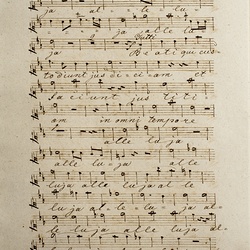 ja al - le - lu -
ja alle lu
Tutti
ja Beati qui cus
todiunt jus di ci am et
faciunt jus ti ti
am in omni tempore
alle lu ja
alle lu - ja alle
luja alle luja al le
luja al - le - lu - ja al -
le luja alle luja
alle